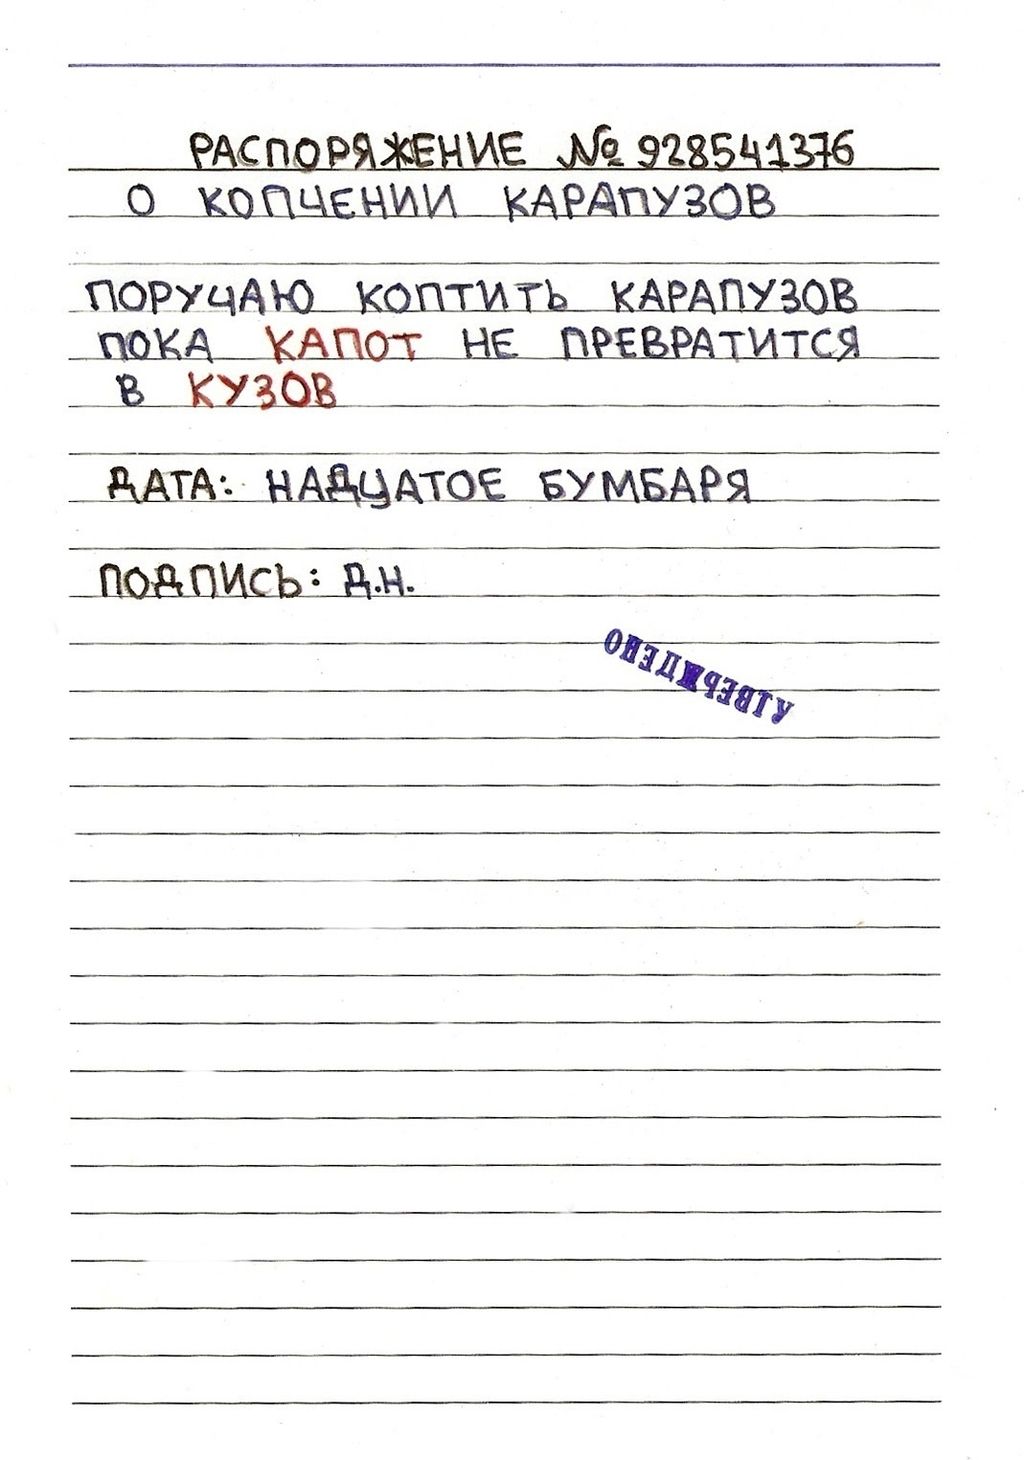 РАСПОРЯЖЕНИЕ № 928541376
О КОПЧЕНИИ КАРАПУЗОВ
ПОРУЧАЮ КОПТИТЬ КАРАПУЗОВ
ПОКА КАПОТ НЕ ПРЕВРАТИТСЯ
В КУЗОВ
ДАТА: НАДЦАТОЕ БУМБАРЯ
ПОДПИСЬ: Д.Н.
УТВЕРЖДЕНО